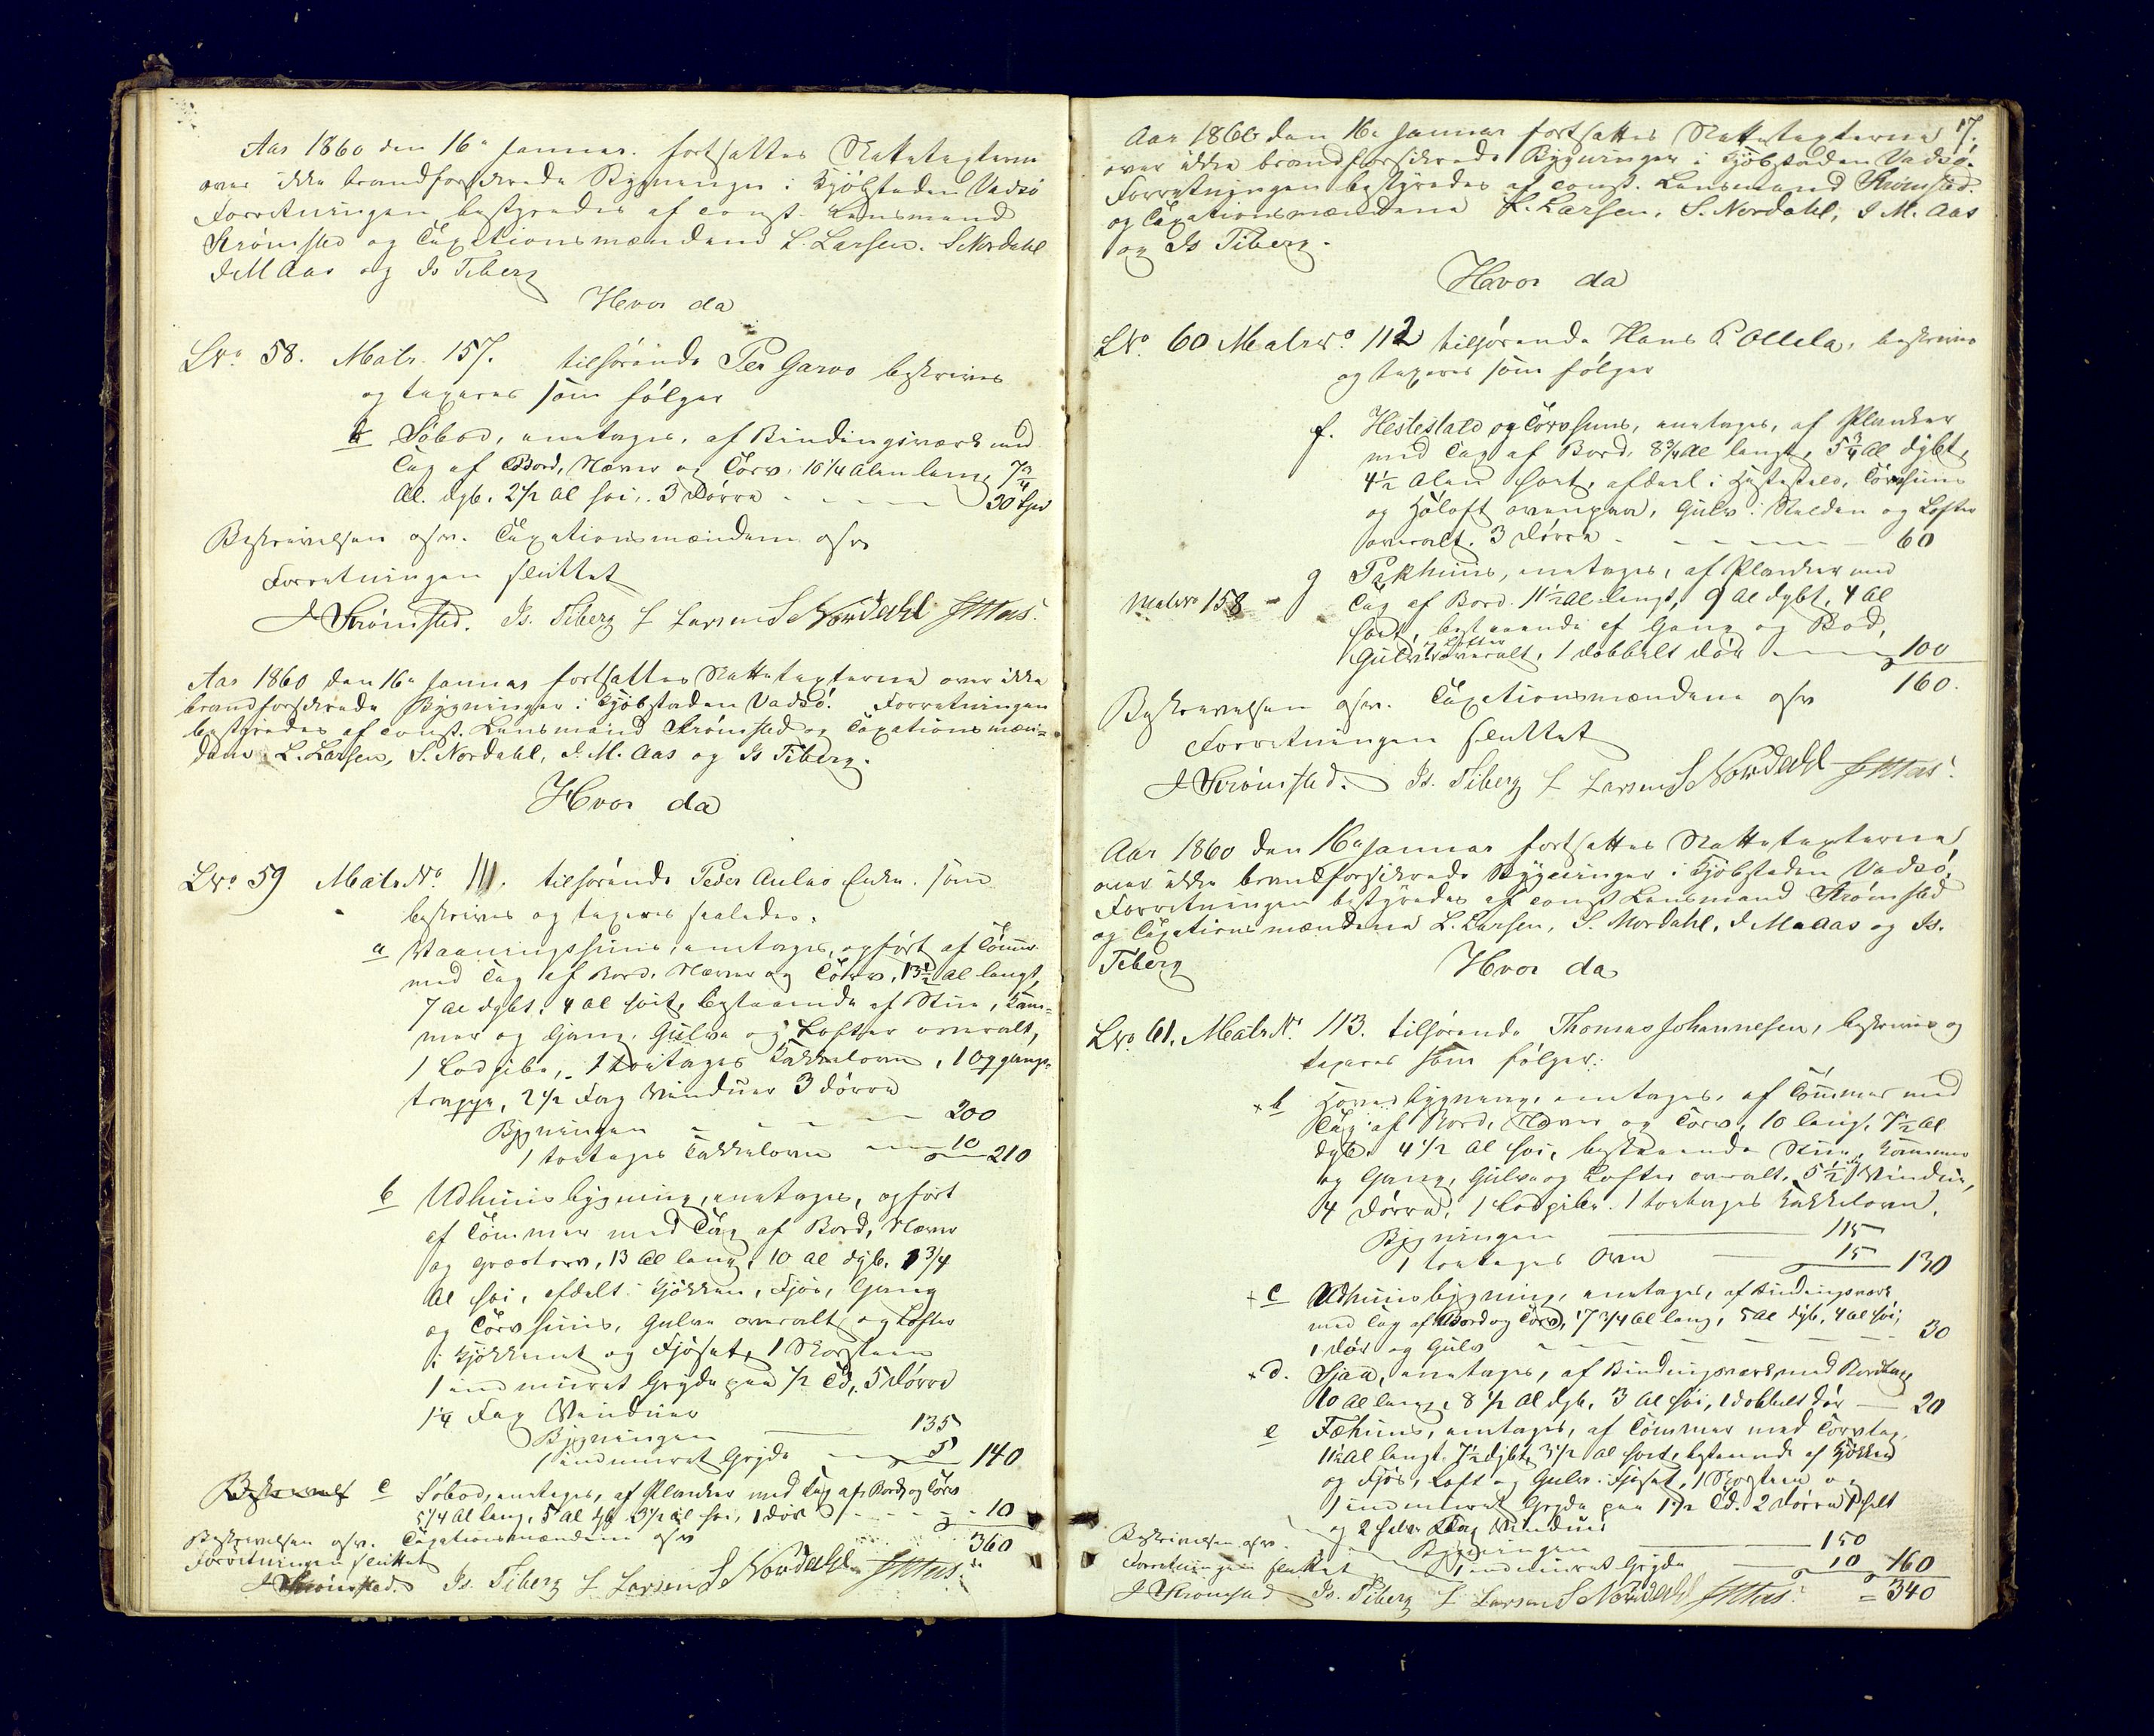 Aar 1860 den 16e Januar fortsattes Skattetaxterne
over ikke brandforsikrede Bygninger i Kjöbstaden Vadsö
Forretningen bestyredes af const. Lensmand
Strömsted og Taxationsmændene L. Larsen. S Nordahl
J M Aas og Is Tiberg
Hvor da
LNo 58. Matr. 157. tilhörende Per Garvo beskrives
og taxeres som fölger
b Söbod, eenetages, af Bindingsværk med
Tag af Bord, Næver og Törv. 10 1/4 Alen lang, 7 3/4
Al. dyb, 2 1/2 Al höi, 3 Dörre - - - 30 Spd
Beskrivelsen osv. Taxationsmændene osv
Forretningen sluttet
J Strömsted. Is. Tiberg L Larsen S Nordahl JMAas.
Aar 1860 den 16e Januar fortsattes Skattetaxterne over ikke
brandforsikrede Bygninger i Kjöbstaden Vadsö. Forretningen
bestyredes af const. Lensmand Strömsted og Taxationsmæn=
dene L. Larsen, S. Nordahl, J. M. Aas og Is Tiberg.
Hvor da
LNo 59 Matr No 111. tilhörende Peder Aulao Enke. som
beskrives og taxeres saaledes.
a Vaaningshuus, eenetages, opfört af Tömmer
med Tag af Bord, Næver og Törv, 13 1/2 Al langt,
7 Al dybt, 4 Al höit, bestaaende af Stue, Kam=
mer og Gang, Gulve og Lofter overalt,
1 Lodpibe, 1 toetages Kakkelovn, 1 Opgangs=
trappe, 2 1/2 Fag Vinduer 3 Dörre
Bygningen - - - 200
1 toetages Kakkelovn - 10 210
b Udhuusbygning, eenetages, opfört
af Tömmer med Tag af Bord, Næver
og Græstorv, 13 Al lang, 10 Al dyb, 3 3/4
Al höi, afdelt i Kjökken, Fjös, Gang
og Törvhuus, Gulve overalt og Lofter
i Kjökkenet og Fjöset, 1 Skorsteen
1 indmuret Gryde paa 1/2 Td, 5 Dörre
1 1/4 Fag Vinduer
Bygningen 135
1 indmuret Gryde 5 140
c Söbod, eenetages, af Planker med Tag af Bord og Törv
5 1/4 Al lang, 5 Al dyb 3 1/2 Al höi, 1 Dör - - - 10
Beskrivelsen osv. Taxationsmændene osv 360
Forretningen sluttet
J Strömsted. Is. Tiberg L Larsen S Nordahl JMAas.
17.
Aar 1860 den 16e Januar fortsattes Skattetaxterne
over ikke brandforsikrede Bygninger i Kjöbstaden Vadsö.
Forretningen bestyredes af const. Lensmand Strömsted.
og Taxationsmændene L. Larsen, S. Nordahl, J M. Aas
og Is Tiberg.
Hvor da
LNo 60 Matr No 112 tilhörende Hans P Ollila, beskrives
og taxeres som fölger
f. Hestestald og Törvhuus, eenetages, af Planker
med Tag af Bord, 8 3/4 Al langt, 5 3/4 Al dybt,
4 1/2 Alen höit, afdeel i Hestestald, Törvhuus
og Höloft ovenpaa, Gulv i Stalden og Lofter
overalt. 3 Dörre - - - 60
Matr No 158 g Pakhuus, eenetages, af Planker med
Tag af Bord 11 1/2 Al langt, 9 Al dybt, 4 Al
höit, bestaaende af Gang og Bod,
Gulv & Lofter overalt, 1 dobbelt Dör - 100
160.
Beskrivelsen osv. Taxationsmændene osv
Forretningen sluttet
J Strömsted. Is. Tiberg L Larsen S Nordahl JMAas.
Aar 1860 den 16e Januar fortsattes Skattetaxterne
over ikke brandforsikrede Bygninger i Kjöbstaden Vadsö,
Forretningen bestyredes af const Lensmand Strömsted
og Taxationsmændene L. Larsen, S. Nordahl, J M Aas og Is.
Tiberg
Hvor da
LNo 61. Matr No 113. tilhörende Thomas Johannesen, beskrives og
taxeres som fölger:
x b Hovedbygning, eenetages, af Tömmer med
Tag af Bord, Næver og Törv, 10 lang, 7 1/2 Al
dyb, 4 1/2 Al höi, bestaaende Stue, Kammer
og Gang, Gulve og Lofter overalt, 5 1/2 Vindue,
4 Dörre, 1 Lodpibe. 1 toetages Kakkelovn.
Bygningen 115
1 toetages Ovn 15 130
x c Udhuusbygning, eenetages, af Bindingsværk
med Tag af Bord og Törv, 17 3/4 Al lang, 5 Al dyb, 4 Al höi,
1 Dör og Gulv - - - 30
x d. Sjaa, eenetages, af Bindingsværk med Bordtag
10 Al lang, 8 1/2 Al dyb, 3 Al höi, 1 dobbelt Dör - 20
e Fæhuus, eenetages, af Tömmer med Törvtag.
11 1/2 Al langt, 7 1/2 dybt, 3 1/2 Al höit, bestaaende af Kjökken
og Fjös, Loft og Gulv i Fjöset, 1 Skorsteen og
1 indmuret Gryde paa 1 1/2 Td. 2 Dörre 1 heelt
og 2 halve Fag Vinduer
Beskrivelsen osv. Bygningen 150
Forretningen sluttet 1 indmuret Gryde 10 160
J Strömsted Is. Tiberg L Larsen S Nordahl JMAas. = 340